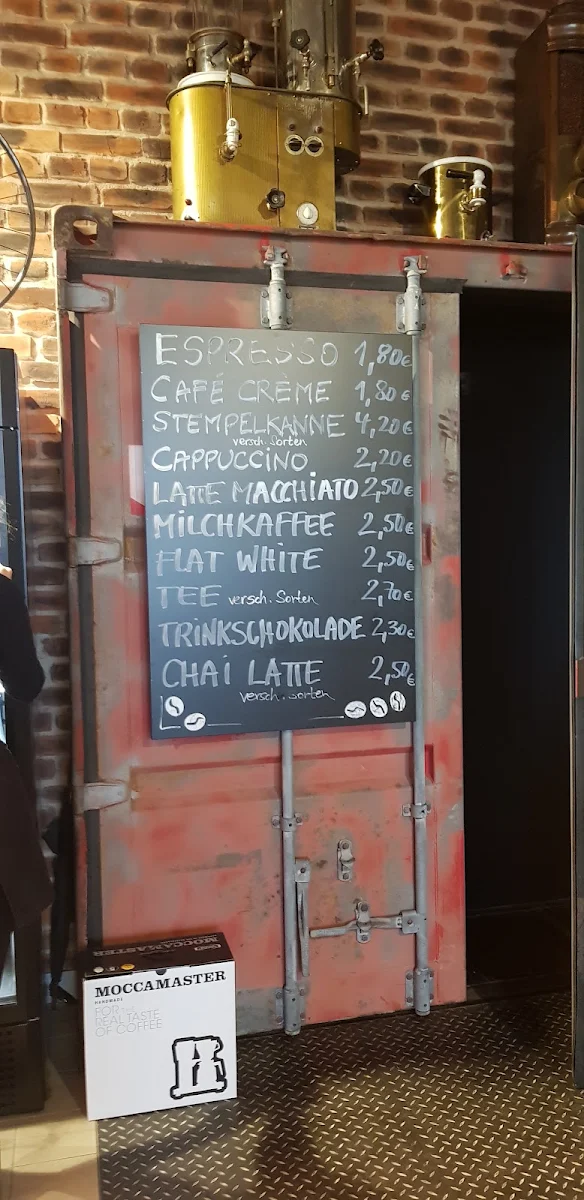 ESPRESSO 1,80€
CAFÉ CRÈME 1,80€
STEMPELKANNE 4,20€
versch. Sorten
CAPPUCCINO 2,20€
LATTE MACCHIATO 2,50€
MILCHKAFFEE 2,50€
FLAT WHITE 2,50€
TEE versch. Sorten 2,70€
TRINKSCHOKOLADE 2,30€
CHAI LATTE 2,50€
versch. Sorten
MOCCAMASTER
MOCCAMASTER
HANDMADE
FOR
REAL TASTE
OF COFFEE